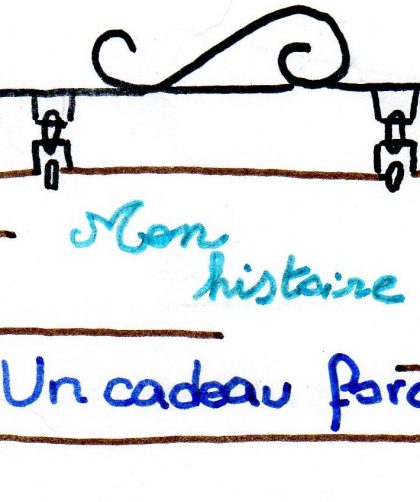 Mon
histoire
Un cadeau